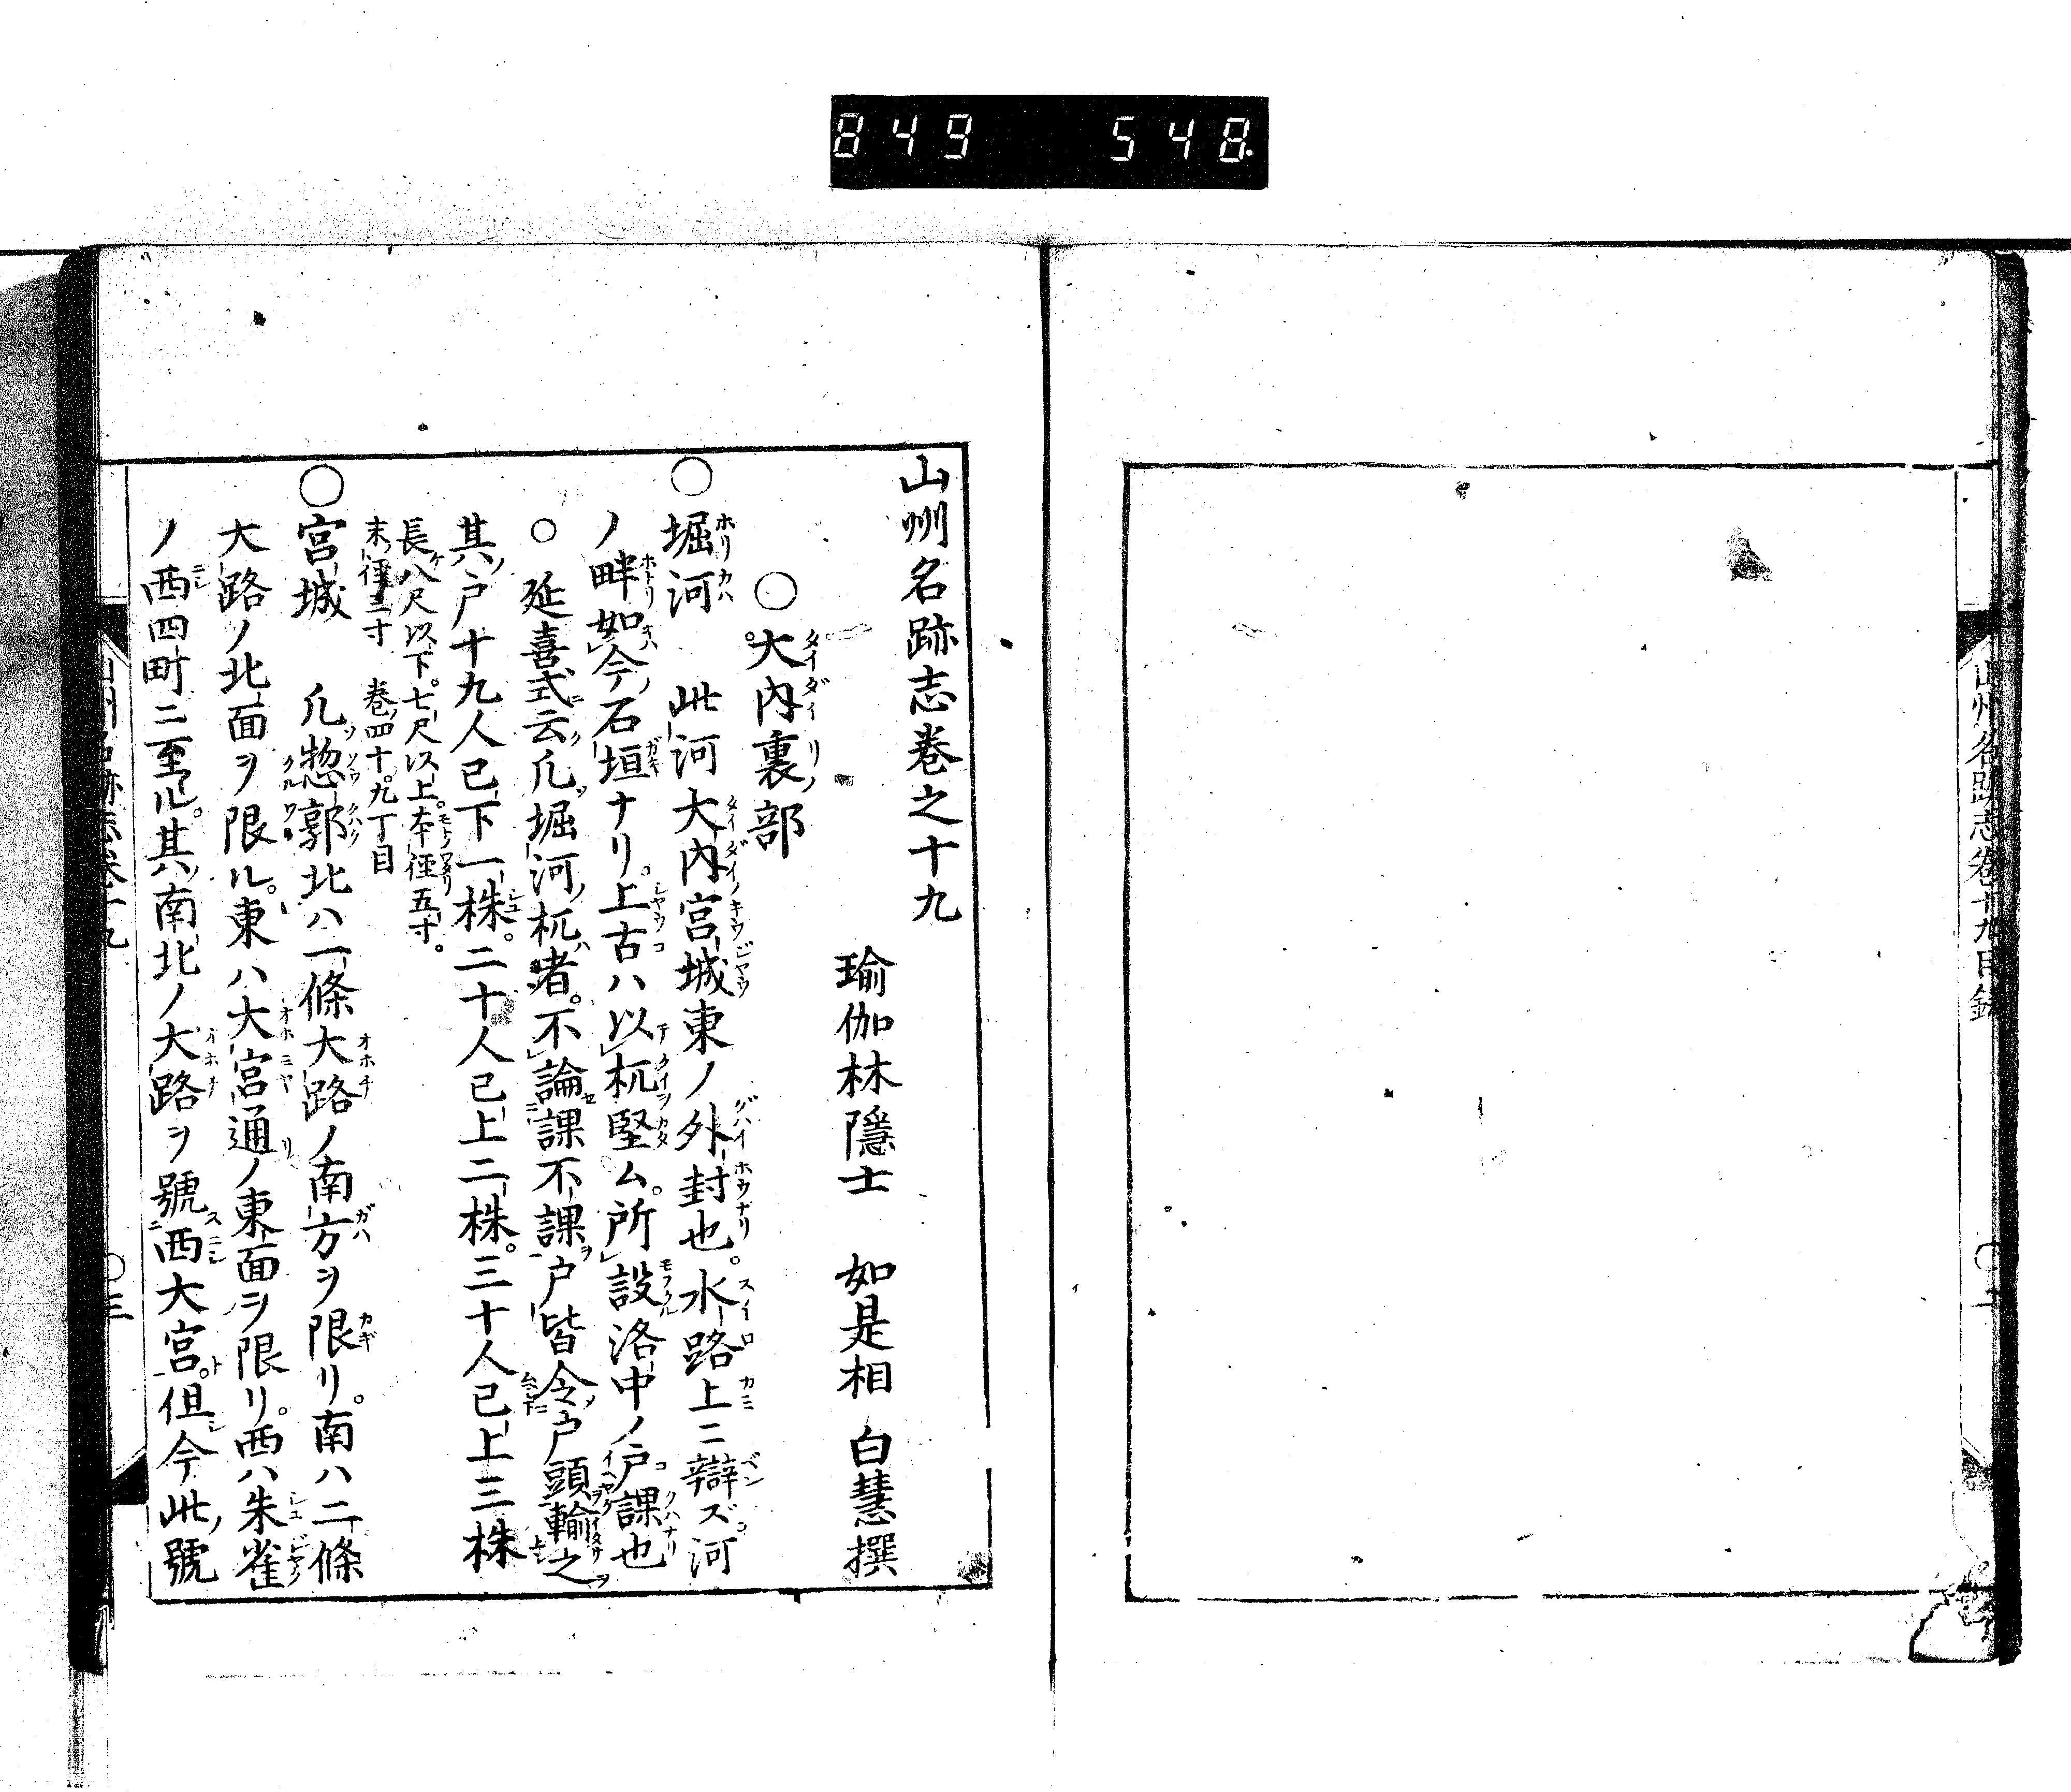 849 548
山州名跡志巻十九目録
山州名跡志巻之十九
瑜伽林隱士 如是相 白慧撰
○大内裏部
○堀河 此河大内宮城東ノ外封也。水路上ニ辯ズ河
ノ畔如今石垣ナリ。上古ハ以杭堅ム。所設洛中ノ戸課也
○延喜式云凡堀河杭者。不論課不課戸皆令戸頭輸之
其戸十九人已下一株。二十人已上二株。三十人已上三株
長八尺以下。七尺以上。本徑五寸。
末徑三寸 巻四十九丁目
○宮城 凡惣郭北ハ一條大路ノ南方ヲ限リ。南ハ二條
大路ノ北面ヲ限ル。東ハ大宮通ノ東面ヲ限リ。西ハ朱雀
ノ西四町ニ至ル。其南北ノ大路ヲ號西大宮。但今此號
山州名跡志巻十九
○三